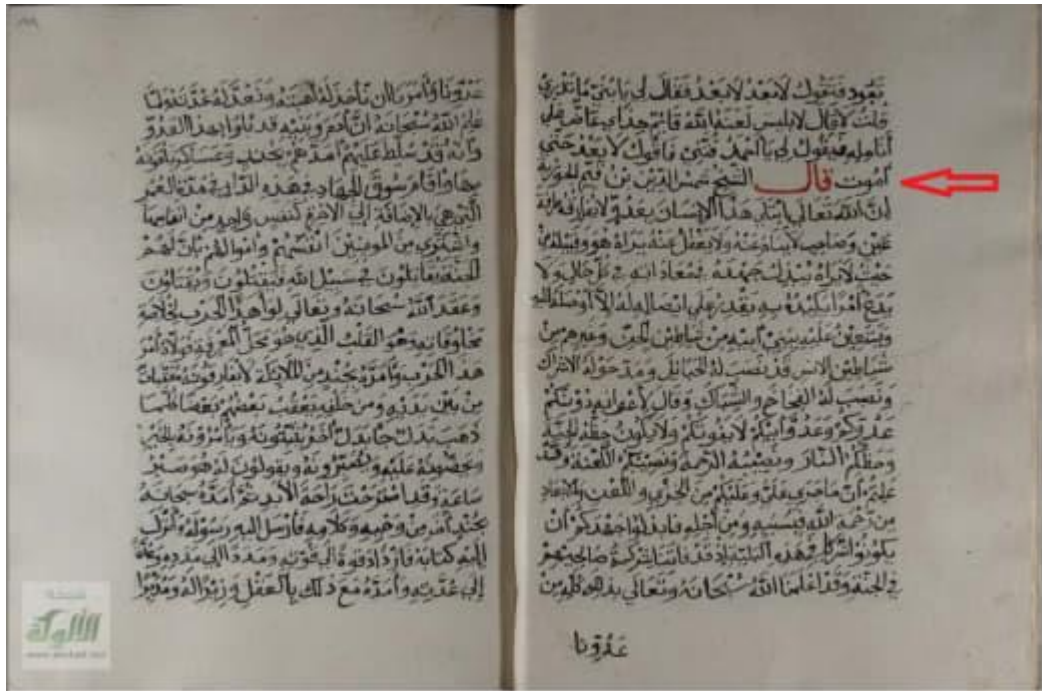 تعود فتقول لا بعد لا بعد فقال لي يا بني ما تدري
قلت لا قال لا بليس لعنه الله قائم حذاي عاض على
أنامله فيقول لي يا أحمد فتني فاقول لا بعد حتى
أموت قال الشيخ شمس الدين بن قيم الجوزية
إن الله تعالى ابتلى هذا الإنسان بعدو لا يفارقه طرفة
عين وصاحب لا ينام عنه ولا يغفل عنه يراه هو وقبيله من
حيث لا يراه يبذل جهده في معاداته في كل حال ولا
يدع أمرا يكيده به يقدر على ايصاله إليه إلا أوصله إليه
ويستعين عليه ببني أبيه من شياطين الجن وغيرهم من
شياطين الانس قد نصب له الحبائل ومد حوله الاشراك
ونصب له الفخاخ والشباك وقال لأعوانه دونكم
عدوكم وعدو أبيكم لا يفوتكم ولا يكون حظه الجنة
وحظكم النار ونصيبه الرحمة ونصيبكم اللعنة وقد
علمتم أن ما جرى علي وعليكم من الخزي واللعن والابعاد
من رحمة الله فبسببه ومن أجله فابذلوا جهدكم أن
يكونوا شركانا في هذه البلية إذ قد فاتنا شركة صالحيهم
في الجنة وقد أعلمنا الله سبحانه وتعالى بذلك كله من
عدونا
عدونا وأمرنا أن نأخذ له أهبته ونعد له عدته ولما
علم الله سبحانه أن آدم وبنيه قد بلوا بهذا العدو
وأنه قد سلط عليهم أمدهم بجند وعساكر يلقونه
بها وأقام سوق الجهاد في هذه الدار في مدة العمر
التي هي بالاضافة إلى الآخرة كنفس واحد من أنفاسها
واشترى من المومنين أنفسهم وأموالهم بأن لهم
الجنة يقاتلون في سبيل الله فيقتلون ويقتلون
وعقد الله سبحانه وتعالى لواء هذا الحرب لخلاصة
مخلوقاته وهو القلب الذي هو محل المعرفة
هذا الحرب وأمره بجند من الملائكة لا يفارقونه معقبات
من بين يديه ومن خلفه يعقب بعضهم بعضا كلما
ذهب بدل جا بدل آخر يثبتونه ويأمرونه بالخير
ويحضونه عليه ويقولون له هو صبر
ساعة وقد استرحت راحة الأبد ثم أمده سبحانه
بجند آخر من وحيه وكلامه فأرسل اليه رسوله وأنزل
إليه كتابه فازداد قوة الى قوته ومددا إلى مدده وعدة
إلى عدته وأمده مع ذلك بالعقل وزيرا له ومدبرا
شبكة
الألوكة
www.alukah.net